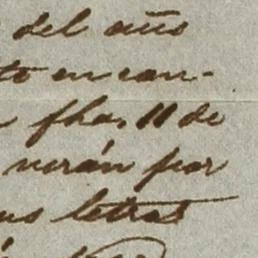 del año
to en can-
fha, 11 de
verán por
us letras